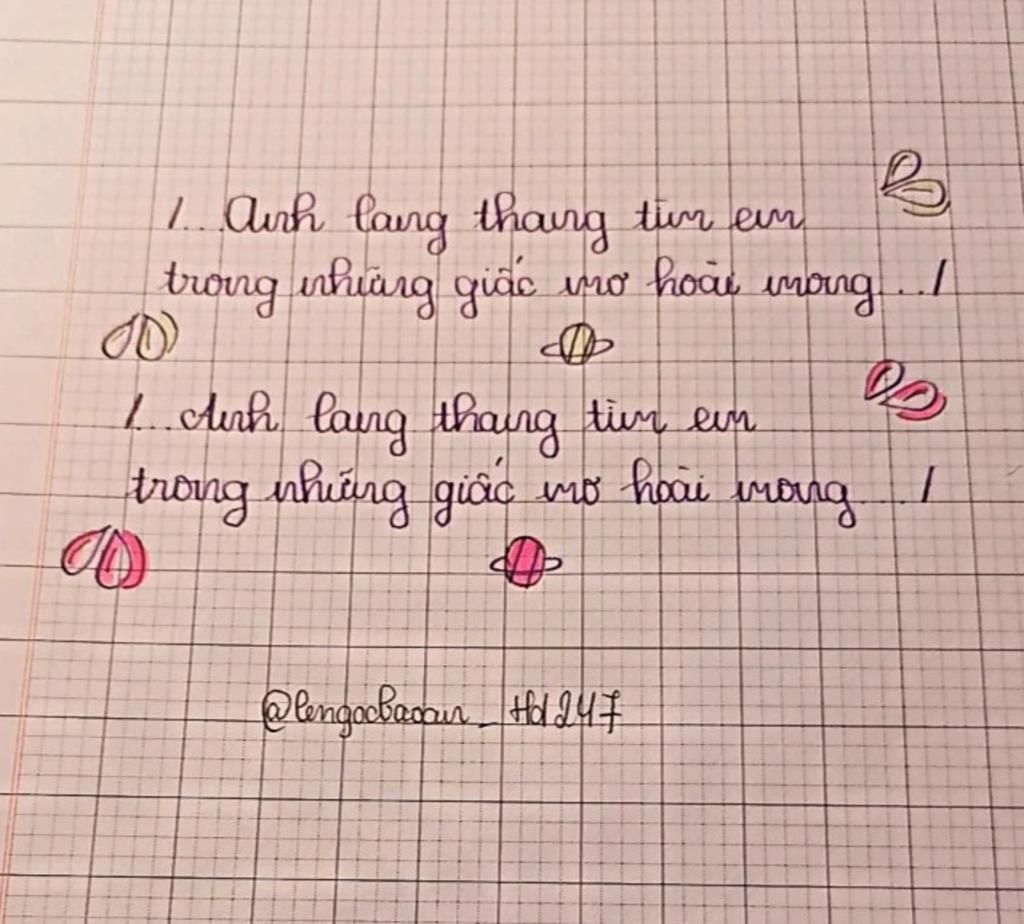 /...Anh lang thang tìm em
trong những giấc mơ hoài mong.../
/...Anh lang thang tìm em
trong những giấc mơ hoài mong.../
@lengocbaoan_Hd247